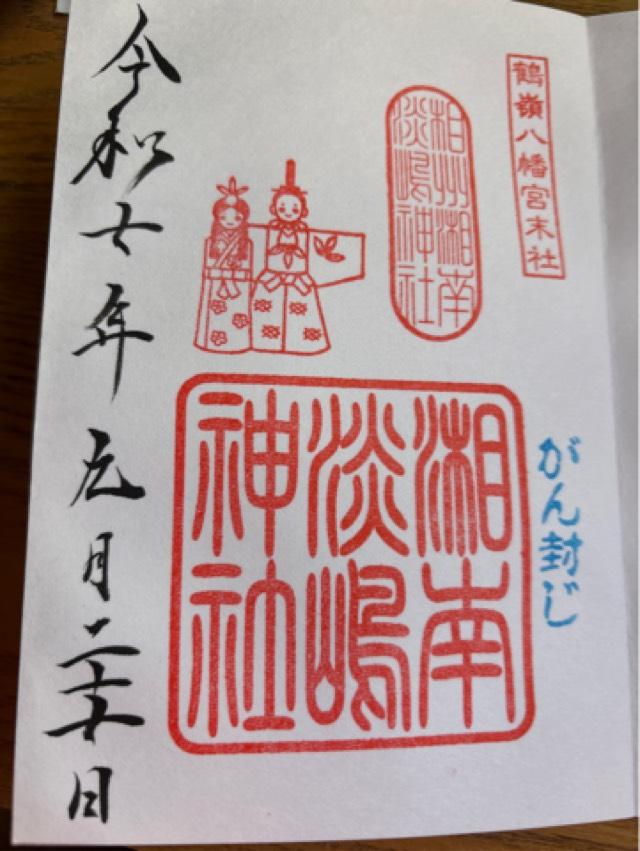 鶴嶺八幡宮末社
相州湘南
淡嶋神社
がん封じ
湘南
淡嶋
神社
令和七年元月二十日